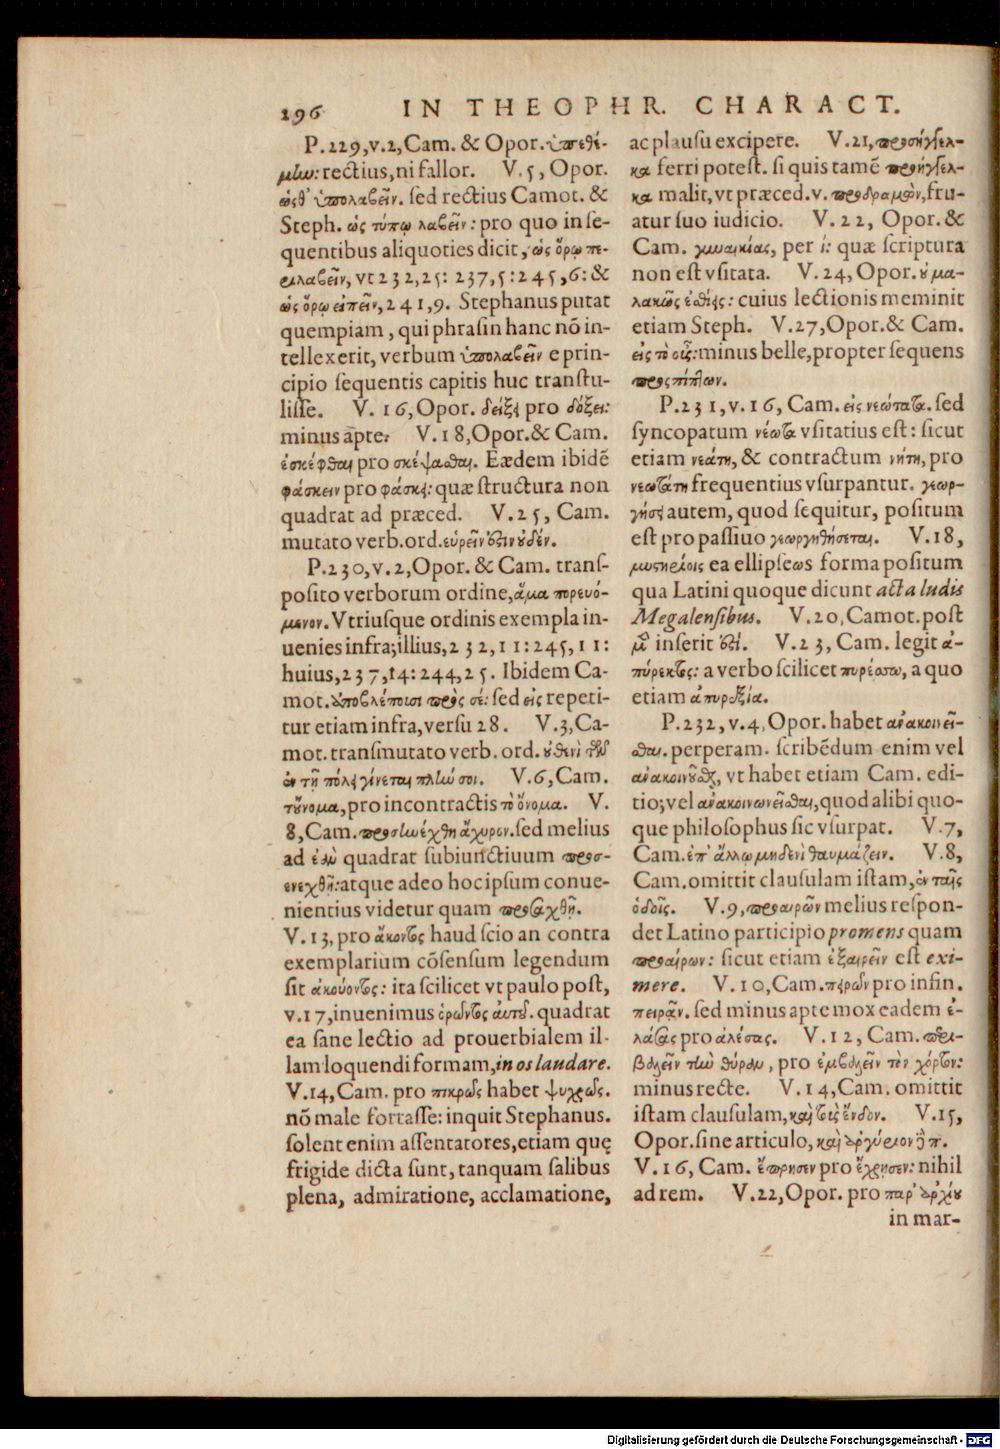 296 IN THEOPHR. CHARACT.
P.229,v.2,Cam. & Opor. ὑπεθέ-
μην: rectius,ni fallor. V.5, Opor.
ὡσθ' ὑπολαβεῖν. sed rectius Camot. &
Steph. ὡς τύπῳ λαβεῖν: pro quo in se-
quentibus aliquoties dicit, ὡς ὅρῳ πε-
ριλαβεῖν, vt 232,25: 237,5: 245,6: &
ὡς ὅρῳ εἰπεῖν, 241,9. Stephanus putat
quempiam, qui phrasin hanc nō in-
tellexerit, verbum ὑπολαβεῖν e prin-
cipio sequentis capitis huc transtu-
lisse. V. 16, Opor. δείξει pro δόξει:
minus apte. V.18,Opor.& Cam.
ἐσκέφθαι pro σκέψασθαι. Eædem ibidē
φάσκειν pro φάσκει: quæ structura non
quadrat ad præced. V.25, Cam.
mutato verb.ord. εὑρεῖν ἔστιν οὐδέν.
P.230,v.2,Opor. & Cam. trans-
posito verborum ordine, ἅμα πορευό-
μενον. Vtriusque ordinis exempla in-
uenies infra; illius, 232,11: 245,11:
huius, 237,14: 244,25. Ibidem Ca-
mot. ἀποβλέπουσι πρὸς σέ: sed εἰς repeti-
tur etiam infra, versu 28. V.3,Ca-
mot. transmutato verb. ord. οὐθενὶ τῶν
ἐν τῇ πόλει γίνεται πλὴν σοι. V.6,Cam.
τοὔνομα, pro incontractis τὸ ὄνομα. V.
8,Cam. προσηνέχθη ἄχυρον. sed melius
ad ἐὰν quadrat subiunctiuum προσ-
ενεχθῇ: atque adeo hoc ipsum conue-
nientius videtur quam προσαχθῇ.
V.13, pro ἄκοντος haud scio an contra
exemplarium cōsensum legendum
sit ἀκούοντος: ita scilicet vt paulo post,
v.17, inuenimus ὁρῶντος αὐτοῦ. quadrat
ea sane lectio ad prouerbialem il-
lam loquendi formam, in os laudare.
V.14,Cam. pro πικρῶς habet ψυχρῶς.
nō male fortasse: inquit Stephanus.
solent enim assentatores, etiam quę
frigide dicta sunt, tanquam salibus
plena, admiratione, acclamatione,
ac plausu excipere. V.21, προσήγγελ-
κα ferri potest. si quis tamē προήγγελ-
κα malit, vt præced. v. προδραμὼν, fru-
atur suo iudicio. V.22, Opor. &
Cam. γυναικίας, per ί: quæ scriptura
non est vsitata. V.24, Opor. οὐ μα-
λακῶς ἐσθίεις: cuius lectionis meminit
etiam Steph. V.27,Opor.& Cam.
εἰς τὸ οὖς: minus belle, propter sequens
προσπίπτων.
P.231,v.16, Cam. εἰς νεώτατα. sed
syncopatum νέωτα vsitatius est: sicut
etiam νεάτη, & contractum νήτη, pro
νεωτάτη frequentius vsurpantur. γεωρ-
γήσει autem, quod sequitur, positum
est pro passiuo γεωργηθήσεται. V.18,
μυστηρίοις ea ellipseως forma positum
qua Latini quoque dicunt acta ludis
Megalensibus. V.20, Camot. post
μὲν inserit ἐστί. V.23, Cam. legit ἀ-
πύρεκτος: a verbo scilicet πυρέσσω, a quo
etiam ἀπυρεξία.
P.232, v.4, Opor. habet ἀνακοινεῖ-
σθαι. perperam. scribēdum enim vel
ἀνακοινοῦσθαι, vt habet etiam Cam. edi-
tio; vel ἀνακοινωνεῖσθαι, quod alibi quo-
que philosophus sic vsurpat. V.7,
Cam. ἐπ' ἄλλῳ μηδενὶ θαυμάζειν. V.8,
Cam. omittit clausulam istam, ἐν ταῖς
ὁδοῖς. V.9, προαιρῶν melius respon-
det Latino participio promens quam
προαίρων: sicut etiam ἐξαιρεῖν est exi-
mere. V.10,Cam. πειρῶν pro infin.
πειρᾷν. sed minus apte mox eadem ἐ-
λάσας pro ἀλέσας. V.12, Cam. περι-
βαλεῖν τὴν θύραν, pro ἐμβαλεῖν τὸν χόρτον:
minus recte. V.14,Cam. omittit
istam clausulam, καὶ τοῖς ἔνδον. V.15,
Opor. sine articulo, καὶ ἀργύριον π.
V.16, Cam. ἔπρησεν pro ἔχρησεν: nihil
ad rem. V.22,Opor. pro παρ' ἀρχὴν
in mar-
Digitalisierung gefördert durch die Deutsche Forschungsgemeinschaft - DFG